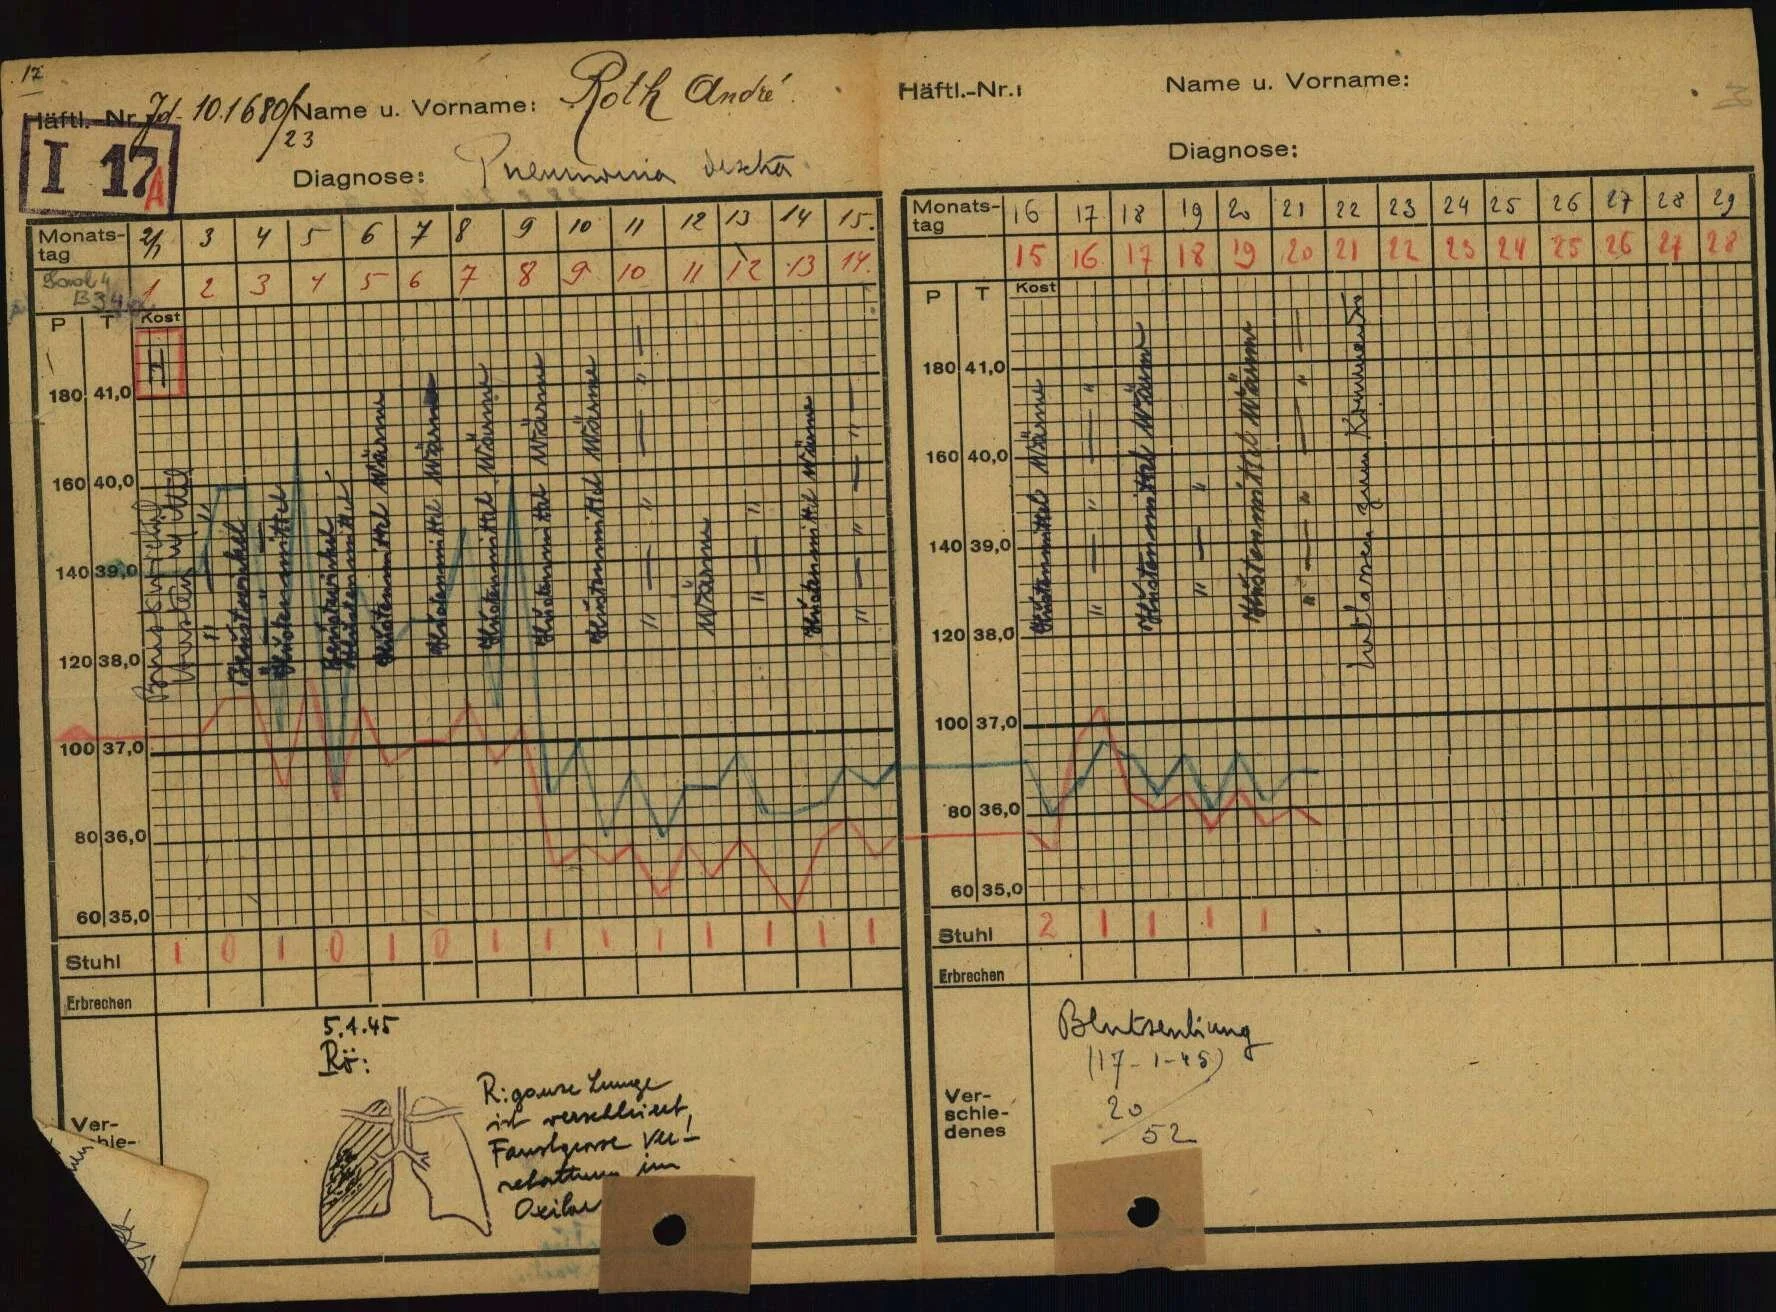 17
Häftl.-Nr. Jd. 101680/23 Name u. Vorname: Roth André
I 17 A
Diagnose: Pneumonia dextra
Monats-tag 2/1 3 4 5 6 7 8 9 10 11 12 13 14 15.
1 2 3 4 5 6 7 8 9 10 11 12 13 14.
P T Kost
I
180 41,0
160 40,0
140 39,0
120 38,0
100 37,0
80 36,0
60 35,0
Brustwickel
Hustenmittel
" — "
Brustwickel
" — "
Hustenmittel
Brustwickel
Hustenmittel
Hustenmittel Wärme
Hustenmittel Wärme
Hustenmittel Wärme
Hustenmittel Wärme
Hustenmittel Wärme
" — " — " —
Wärme
" — "
Hustenmittel Wärme
" — " — " —
Stuhl 1 0 1 0 1 0 1 1 1 1 1 1 1 1
Erbrechen
5.1.45
Rö:
R: ganze Lunge
ist verschleiert,
Faustgrosse Ver!
im
Ver-
schie-
Häftl.-Nr.: Name u. Vorname:
Diagnose:
Monats-tag 16 17 18 19 20 21 22 23 24 25 26 27 28 29
15 16 17 18 19 20 21 22 23 24 25 26 27 28
P T Kost
180 41,0
160 40,0
140 39,0
120 38,0
100 37,0
80 36,0
60 35,0
Hustenmittel Wärme
" — " — "
Hustenmittel Wärme
" — "
Hustenmittel Wärme
" — " — " —
Entlassen zum Kommando
Stuhl 2 1 1 1 1
Erbrechen
Blutsenkung
(17-1-45)
20/52
Ver-
schie-
denes